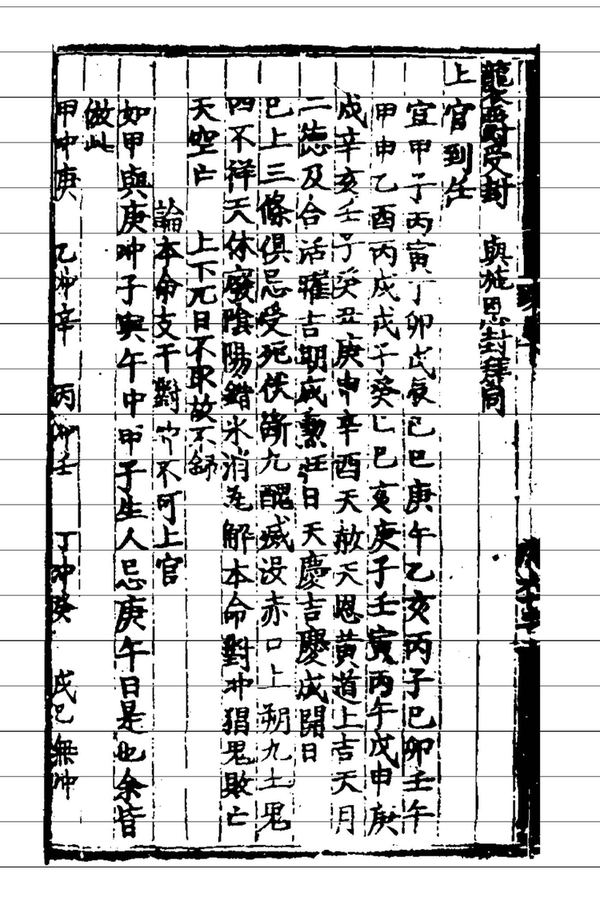 襲爵受封 與施恩封拜同
上官到任
宜甲子丙寅丁卯戊辰己巳庚午乙亥丙子己卯壬午
甲申乙酉丙戌戊子癸巳己亥庚子壬寅丙午戊申庚
戌辛亥壬子癸丑庚申辛酉天赦天恩黃道上吉天月
二德及合活曜吉期成勳旺日天慶吉慶成開日
已上三條俱忌受死伏斷九醜滅沒赤口上朔九土鬼
四不祥天休廢陰陽錯氷消瓦解本命對冲猖鬼敗亡
天空亡 上下兀日不取故不錄
論本命支干對冲不可上官
如甲與庚冲子與午冲甲子生人忌庚午日是也余皆
倣此
甲冲庚 乙冲辛 丙冲壬 丁冲癸 戊己無冲